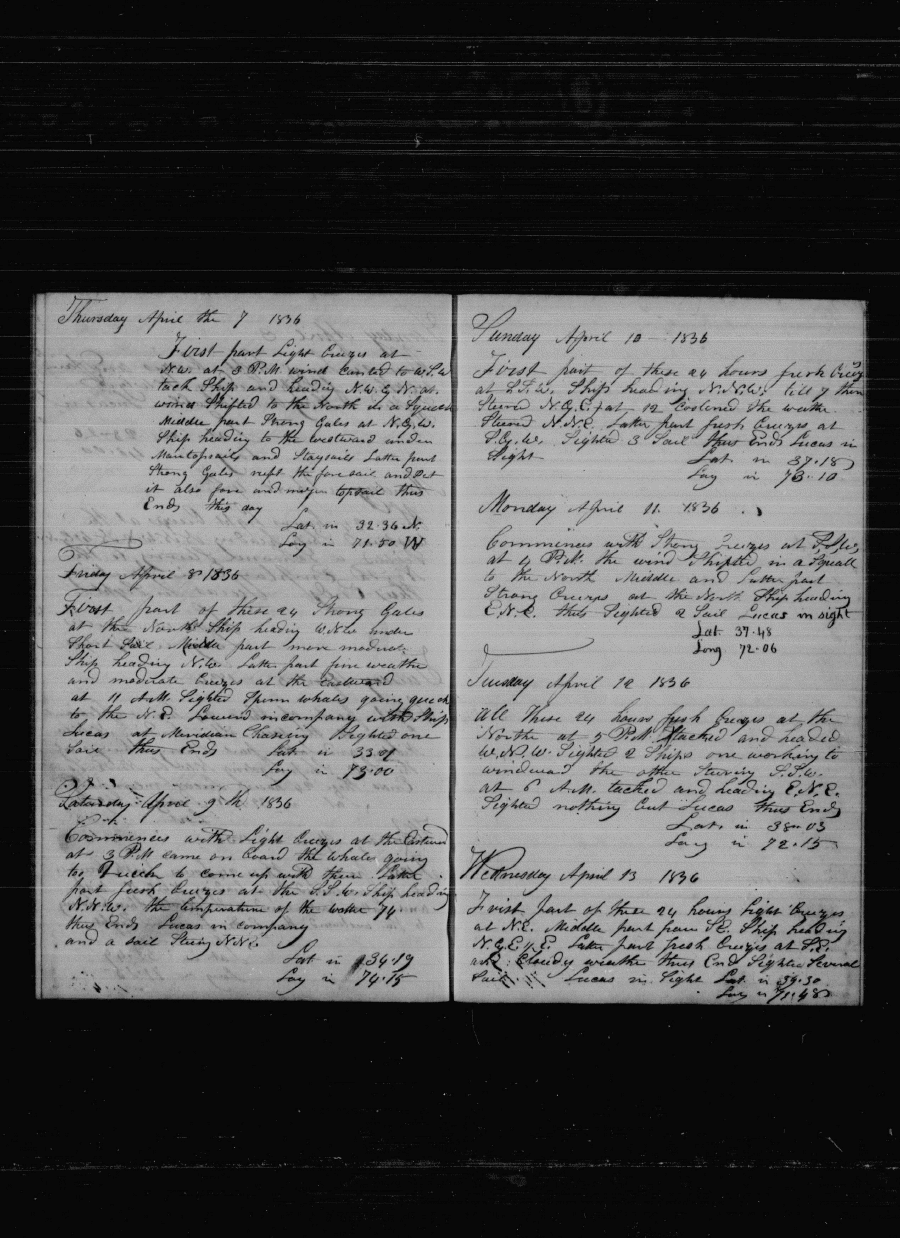 Thursday April the 7 1836
First part Light Breezes at
N.W. at 3 P.M wind canted to W.S.W
tack Ship and heading N.W. by N. at.
wind Shifted to the North in a Squall
Middle part Strong Gales at N.by.W.
Ship heading to the westward under
Maintopsails and Staysails Latter part
Strong Gales reeft the foresail and Set
it also fore and topsail thus
Ends this day
Lat in 32.36 N.
Long in 71.50 W
Friday April 8 1836
First part of these 24 Strong Gales
at the North Ship heading W.N.W under
Short Sail Middle part more moderate
Ship heading N.W. Latter part fine weather
and moderate Breezes at the Eastward
at 11 A.M. Sighted Sperm whales going quick
to the N.E. Lowered in company with Ship
Lucas at Meridian Chasing Sighted one
Sail thus Ends Lat in 33.01
Long in 73.00
Saturday April 9 th 1836
Commences with Light Breezes at the Eastward
at 3 P.M came on board the whales going
to quick to come up with them Latter
part fresh Breezes at the S.S.W. Ship heading
N.N.W. the temperature of the water 74
thus Ends Lucas in company
and a Sail Steering N.N.E.
Lat in 34.19
Long in 74.15
Sunday April 10 - 1836
First part of these 24 hours fresh Breezes
at S.S.W. Ship heading N.N.W. till 7 then
Steered N.by.E. at 12 the water
Steered N.N.E. Latter part fresh Breezes at
S.by.W. Sighted 3 Sail thus Ends Lucas in
Sight Lat in 37.18
Long in 73.10
Monday April 11. 1836
Commences with Strong Breezes at
at 4 P.M. the wind Shifted in a Squall
to the North Middle and Latter part
Strong Breezes at the North Ship heading
E.N.E. thus Sighted 2 Sail Lucas in sight
Lat 37.48
Long 72.06
Tuesday April 12 1836
All these 24 hours fresh Breezes at the
North at 5 P.M tacked and headed
W.N.W. Sighted 2 Ships one working to
windward the other Steering S.S.W.
at 6 A.M. tacked and heading E.N.E.
Sighted nothing but Lucas thus Ends
Lat. in 38.03
Long in 72.15
Wednesday April 13 1836
First part of these 24 hours Light Breezes
at N.E. Middle part from S.E. Ship heading
N.by.E Latter part fresh Breezes at S.E.
Cloudy weather thus Ends Sighted Several
Sail Lucas in Sight Lat in 39.30
Long in 71.48